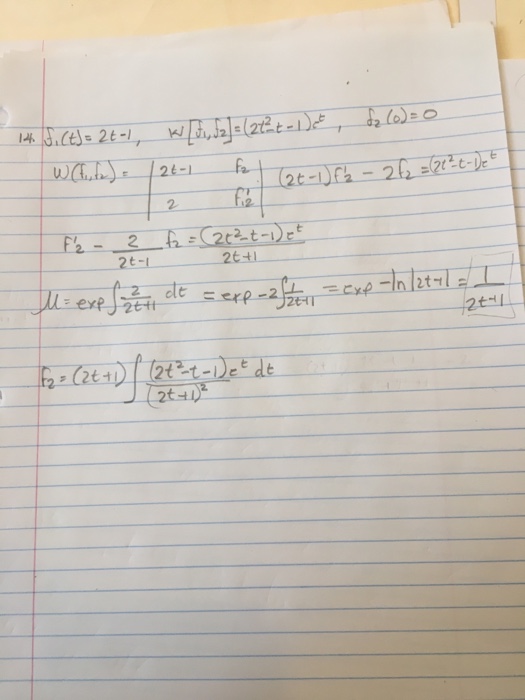 14. f₁(t) = 2t-1, W[f₁,f₂] = (2t²-t-1)eᵗ, f₂(0) = 0
W(f₁,f₂) = | 2t-1 f₂ | (2t-1)f'₂ - 2f₂ = (2t²-t-1)eᵗ
2 f'₂
f'₂ - 2/(2t-1) f₂ = (2t²-t-1)eᵗ/(2t+1)
μ = exp∫ 2/(2t+1) dt = exp -2∫ 1/(2t+1) = exp -ln|2t+1| = 1/(2t+1)
f₂ = (2t+1) ∫ (2t²-t-1)eᵗ/(2t+1)² dt